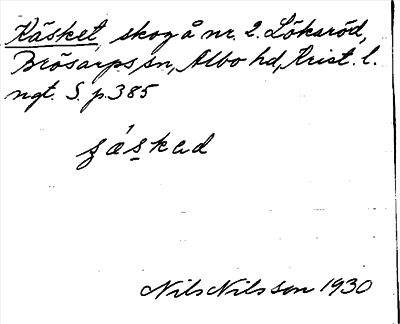 Käsket, skog å nr. 2. Lökaröd,
Brösarps sn, Albo hd, Krist. l.
ngt. S. p. 385
Nils Nilsson 1930